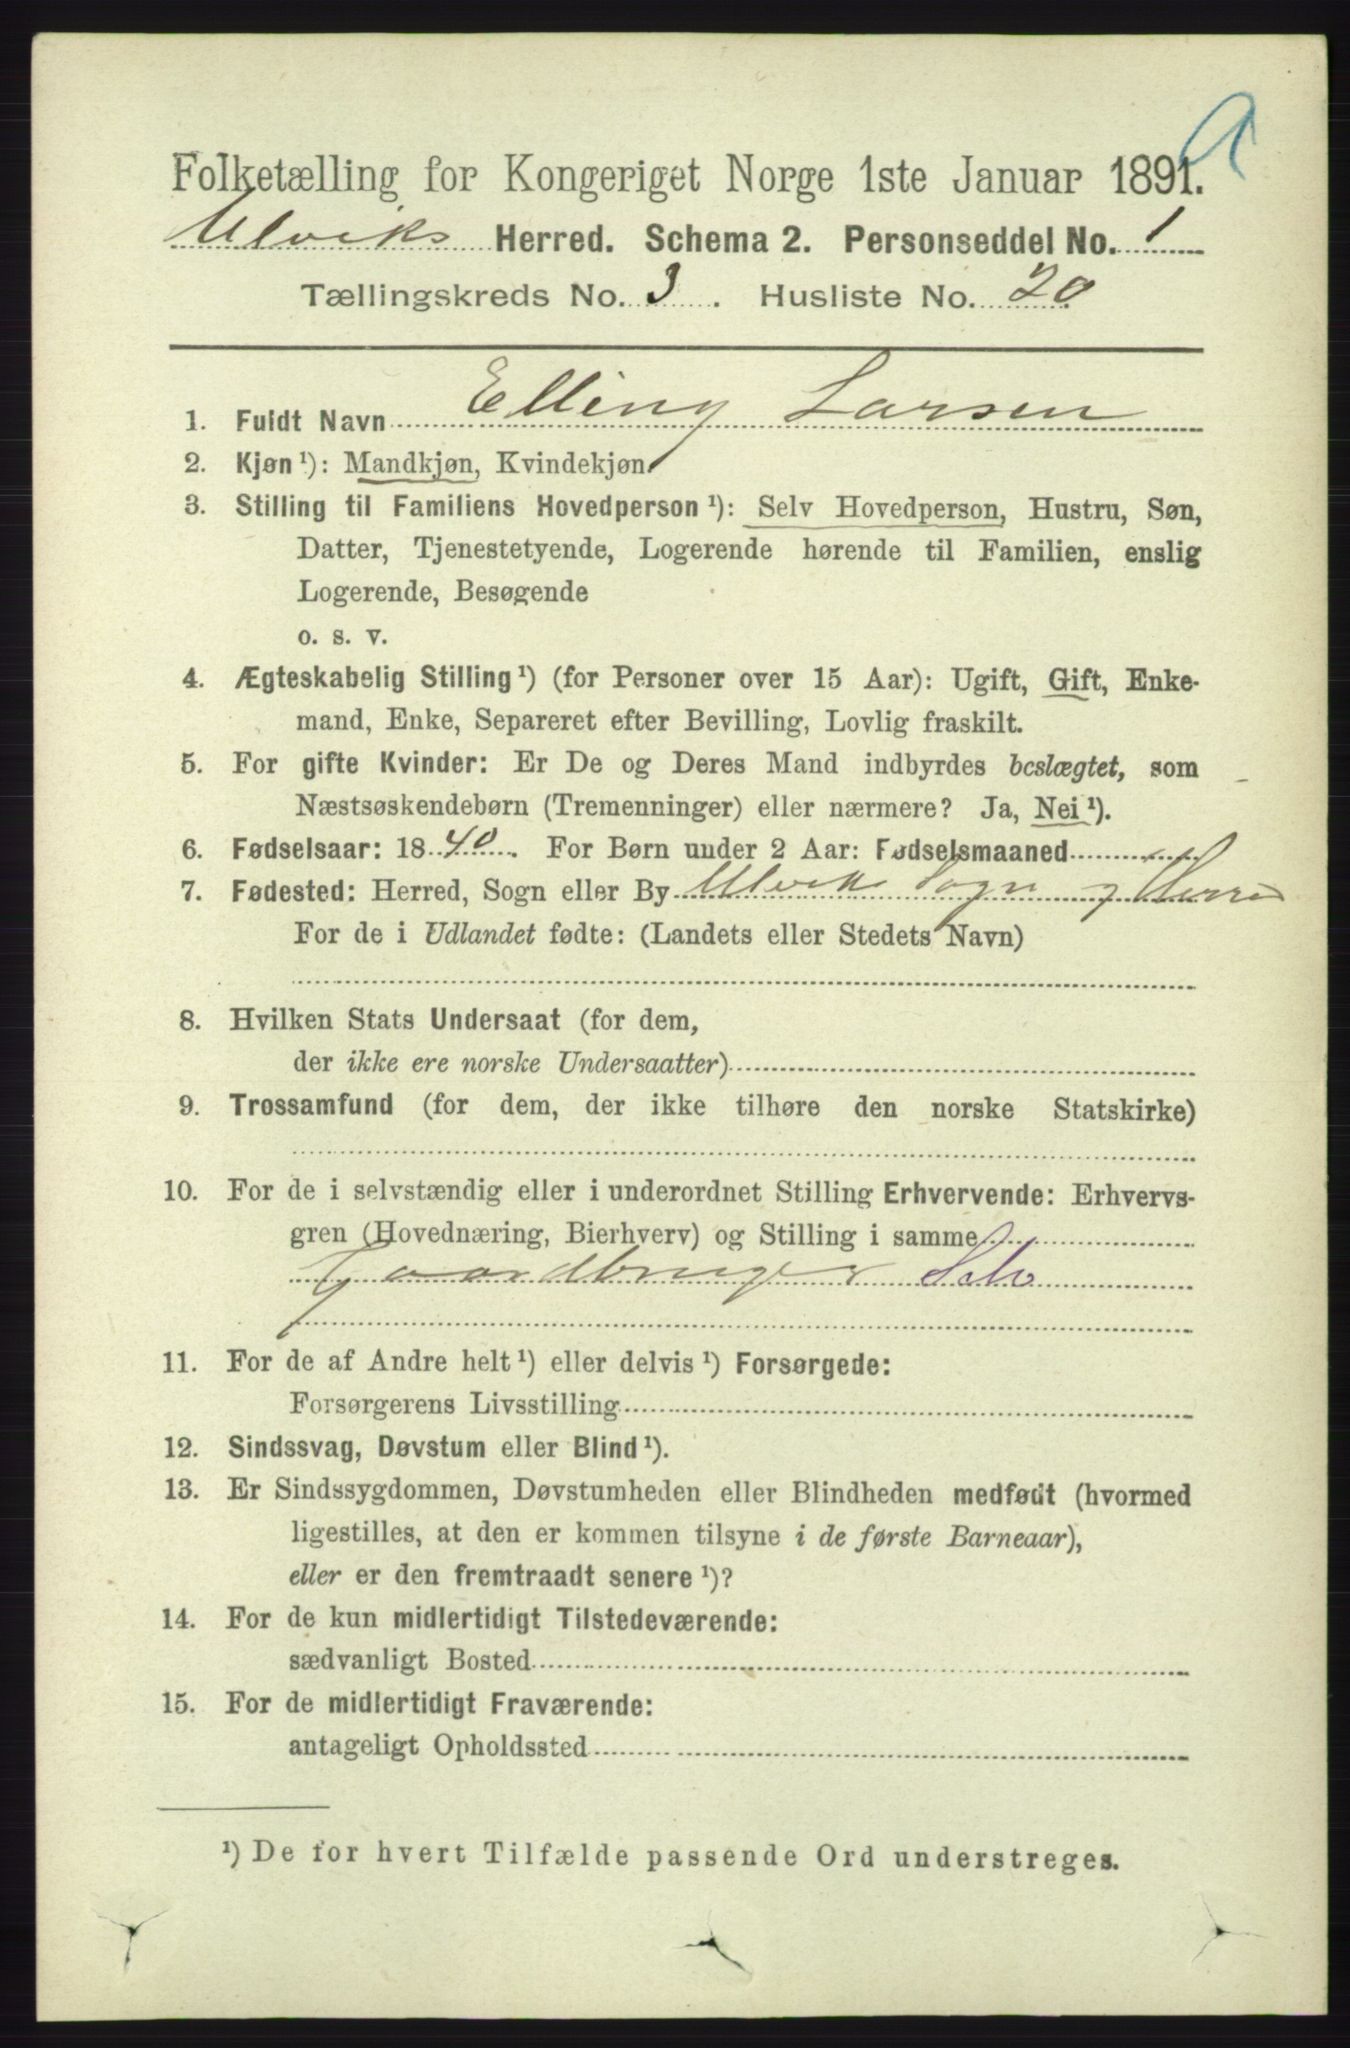 Folketælling for Kongeriget Norge 1ste Januar 1891.
Ulviks Herred. Schema 2. Personseddel No. 1
Tællingskreds No. 3. Husliste No. 20
1. Fuldt Navn Elling Larsen
2. Kjøn ¹): Mandkjøn, Kvindekjøn.
3. Stilling til Familiens Hovedperson ¹): Selv Hovedperson, Hustru, Søn,
Datter, Tjenestetyende, Logerende hørende til Familien, enslig
Logerende, Besøgende
o. s. v.
4. Ægteskabelig Stilling ¹) (for Personer over 15 Aar): Ugift, Gift, Enke-
mand, Enke, Separeret efter Bevilling, Lovlig fraskilt.
5. For gifte Kvinder: Er De og Deres Mand indbyrdes beslægtet, som
Næstsøskendebørn (Tremenninger) eller nærmere? Ja, Nei ¹).
6. Fødselsaar: 1840. For Børn under 2 Aar: Fødselsmaaned
7. Fødested: Herred, Sogn eller By Ulvik Sogn og Herred
For de i Udlandet fødte: (Landets eller Stedets Navn)
8. Hvilken Stats Undersaat (for dem,
der ikke ere norske Undersaatter)
9. Trossamfund (for dem, der ikke tilhøre den norske Statskirke)
10. For de i selvstændig eller i underordnet Stilling Erhvervende: Erhvervs-
gren (Hovednæring, Bierhverv) og Stilling i samme
Gaardbruger Selv
11. For de af Andre helt ¹) eller delvis ¹) Forsørgede:
Forsørgerens Livsstilling
12. Sindssvag, Døvstum eller Blind ¹).
13. Er Sindssygdommen, Døvstumheden eller Blindheden medfødt (hvormed
ligestilles, at den er kommen tilsyne i de første Barneaar),
eller er den fremtraadt senere ¹)?
14. For de kun midlertidigt Tilstedeværende:
sædvanligt Bosted
15. For de midlertidigt Fraværende:
antageligt Opholdssted
¹) De for hvert Tilfælde passende Ord understreges.